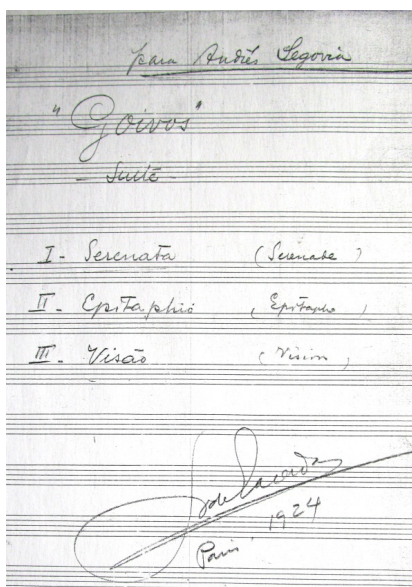 para Andrés Segovia
"Goivos"
- Suite -
I - Serenata (Serenade)
II - Epitaphio (Epitaphe)
III - Visão (Vision)
F de Lacerda
Paris 1924